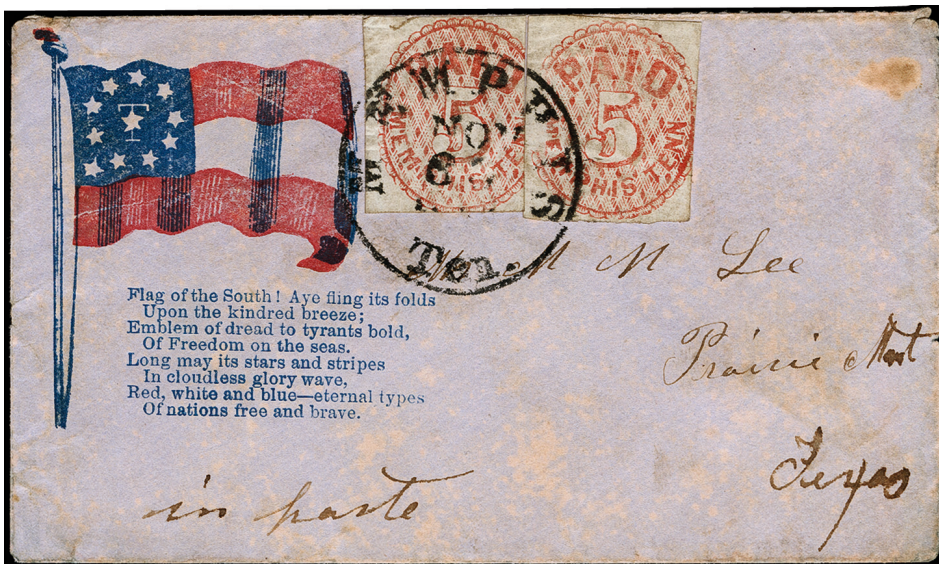 PAID
5
MEMPHIS TENN
PAID
5
MEMPHIS TENN
MEMPHIS
NOV
Ten.
T
Flag of the South! Aye fling its folds
Upon the kindred breeze;
Emblem of dread to tyrants bold,
Of Freedom on the seas.
Long may its stars and stripes
In cloudless glory wave,
Red, white and blue—eternal types
Of nations free and brave.
M M Lee
Prairie
Texas
in haste